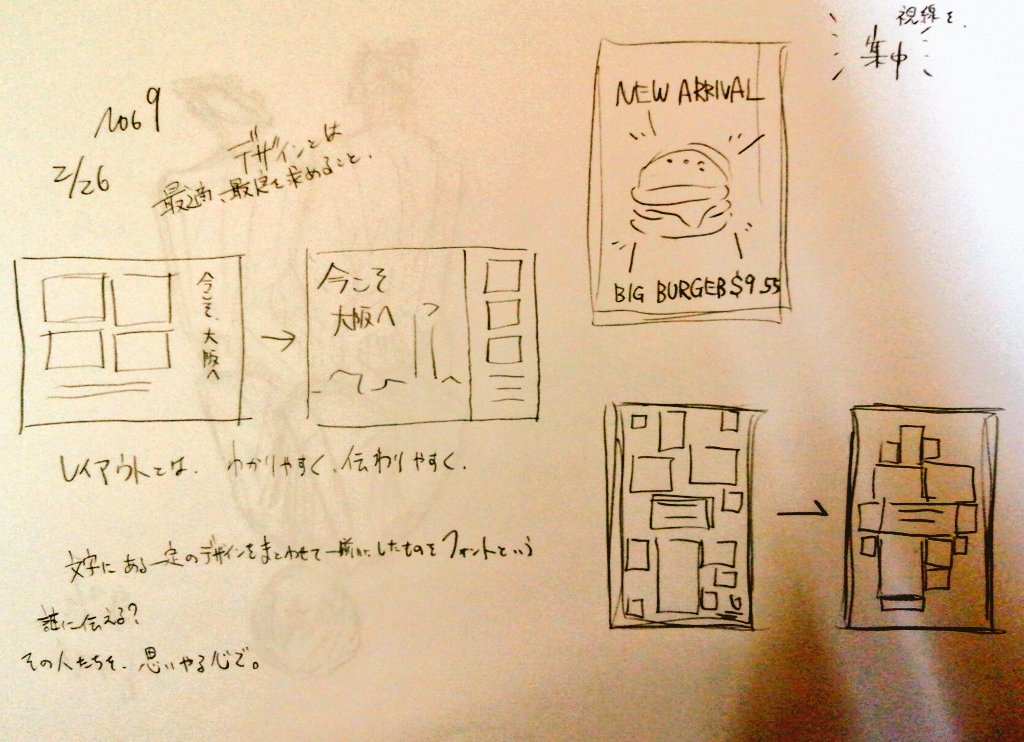 No6 9
2/26
デザインとは
最適、最良を求めること.
今こそ、大阪へ
今こそ
大阪へ
レイアウトとは、わかりやすく、伝わりやすく.
文字にある一定のデザインをまとわせて一揃いにしたものをフォントという
誰に伝える?
その人たちを、思いやる心で。
視線を、
集中
NEW ARRIVAL
BIG BURGER $9.55